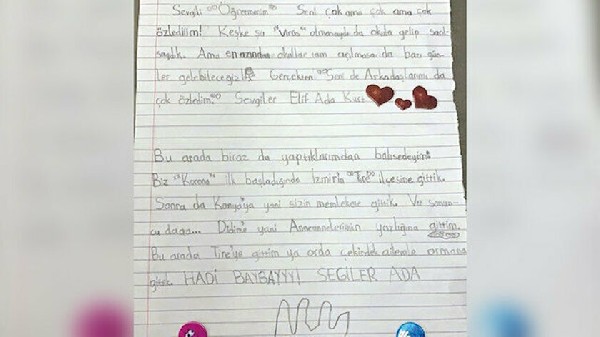 Sevgili "Öğretmenim" Seni çok ama çok ama çok
özledim! Keşke şu "Virüs" olmasaydı da okula gelip
Ama okullar tam açılmasa da bazı gün-
ler gelebileceğiz! Öğretmenim Seni de Arkadaşlarımı da
çok özledim. Sevgiler Elif Ada
Bu arada biraz da yaptıklarımdan bahsedeyim.
Biz "Korona" ilk başladığında İzmir'in "Tire" ilçesine gittik.
Sonra da Konya'ya yani sizin memlekete gittik. Ve sonun-
cu da... Didim'e yani Anneannelerimin yazlığına gittim.
Bu arada Tire'ye gittim ya orda çekirdek ailemle ormana
gittik HADİ BAYBAYYY! SEGİLER ADA